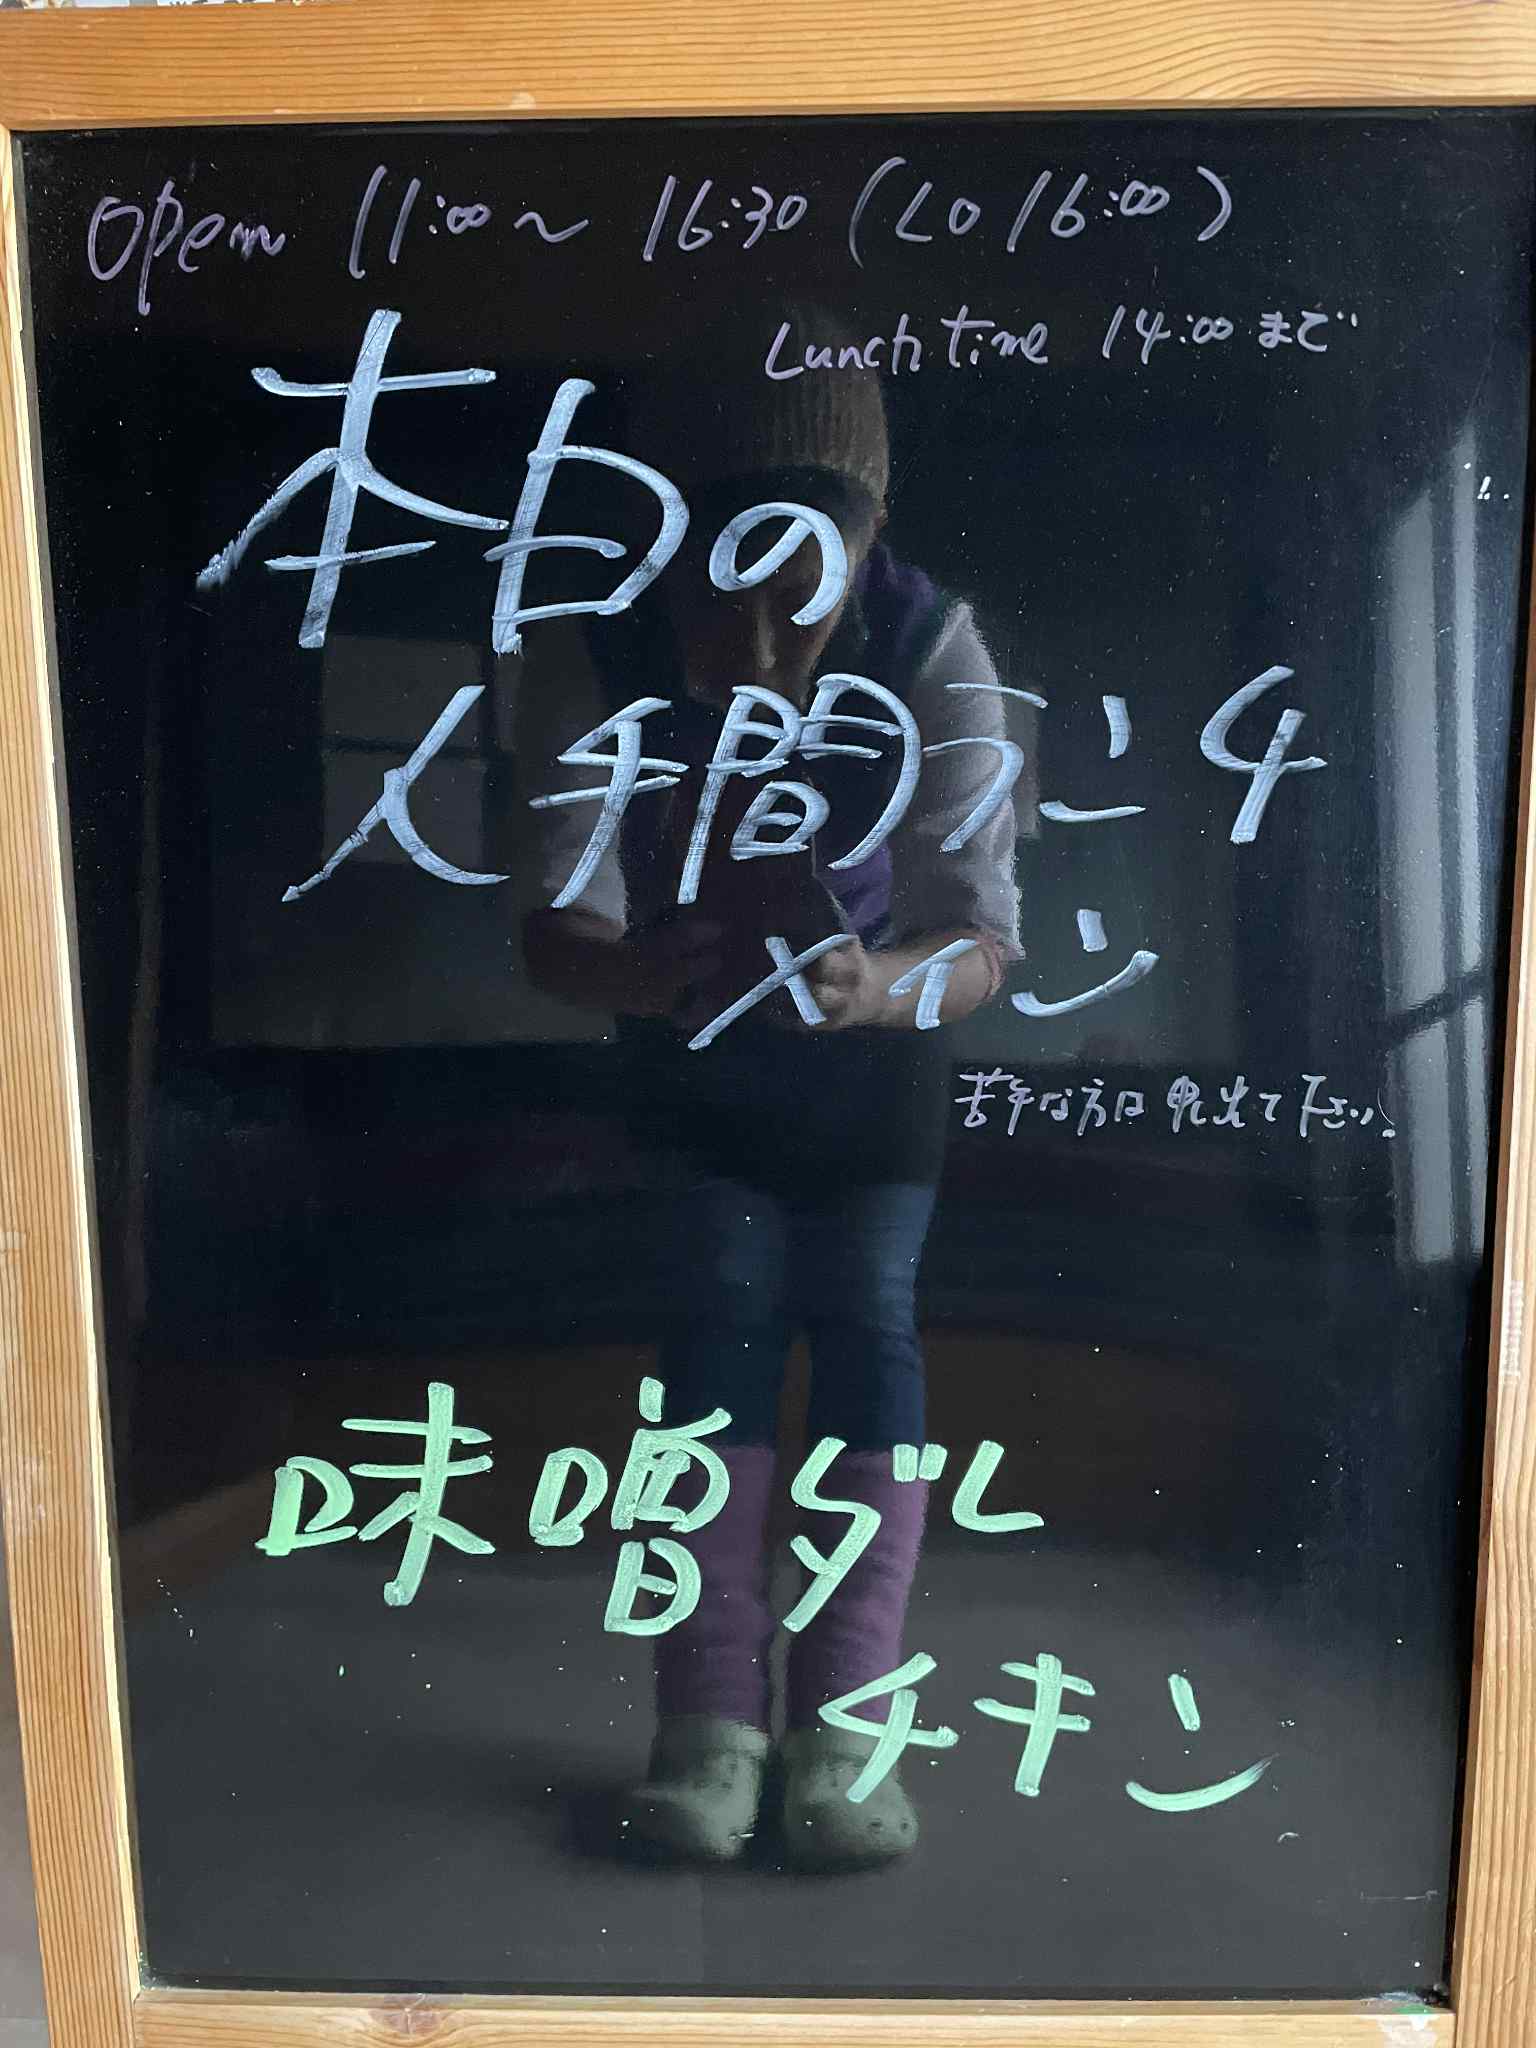 open 11:00～16:30（LO 16:00）
Lunch time 14:00 まで
本日の
人手間ランチ
メイン
苦手な方は申し出て下さい!
味噌ダレ
チキン